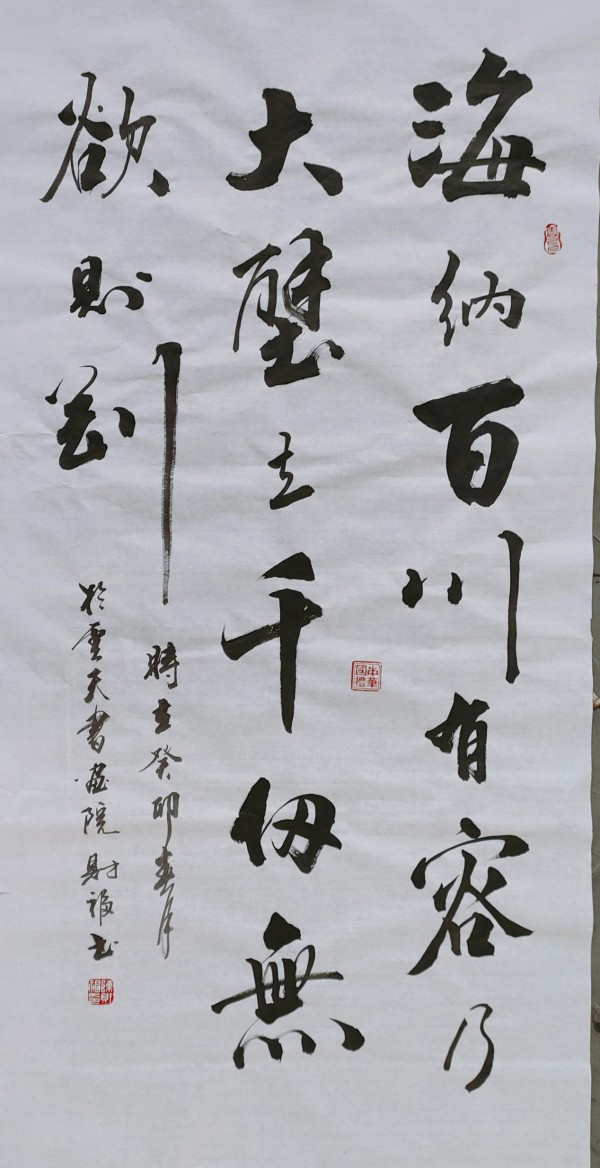 海納百川有容乃
大壁立千仞無
欲則剛
時在癸卯春月
於雲天書畫院財福书
中華國禮